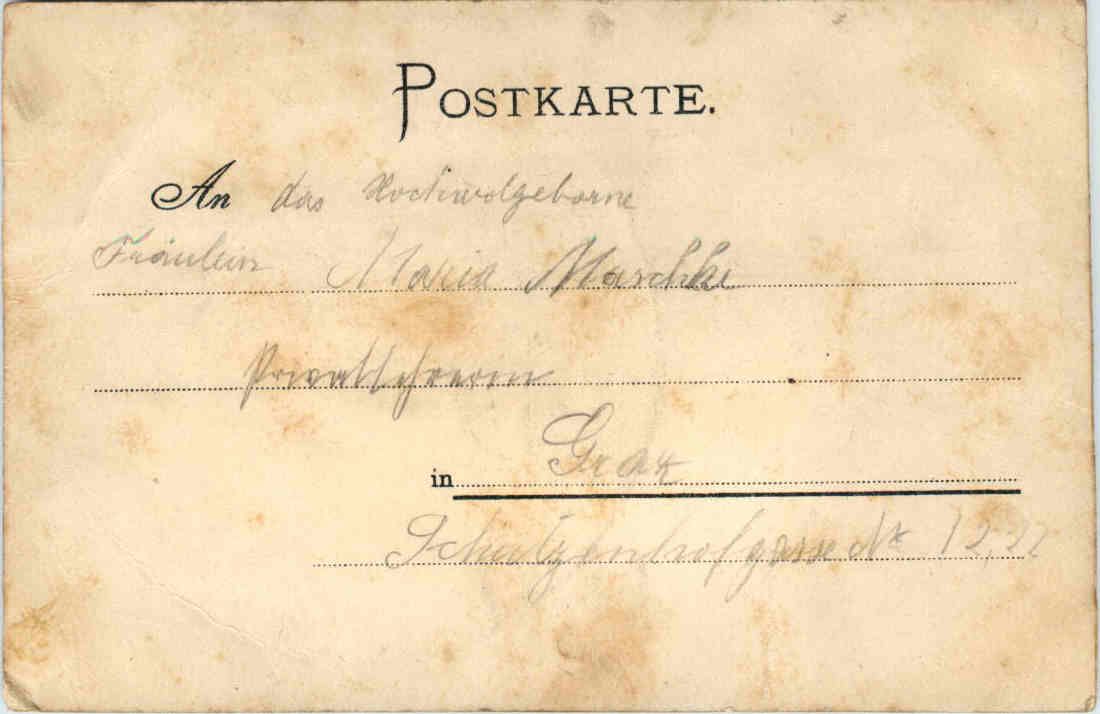 POSTKARTE.
An das Hochwolgeborne
Fräulein Maria Maschke
Privatlehrerin
in Graz
Schützenhofgasse Nr 12,